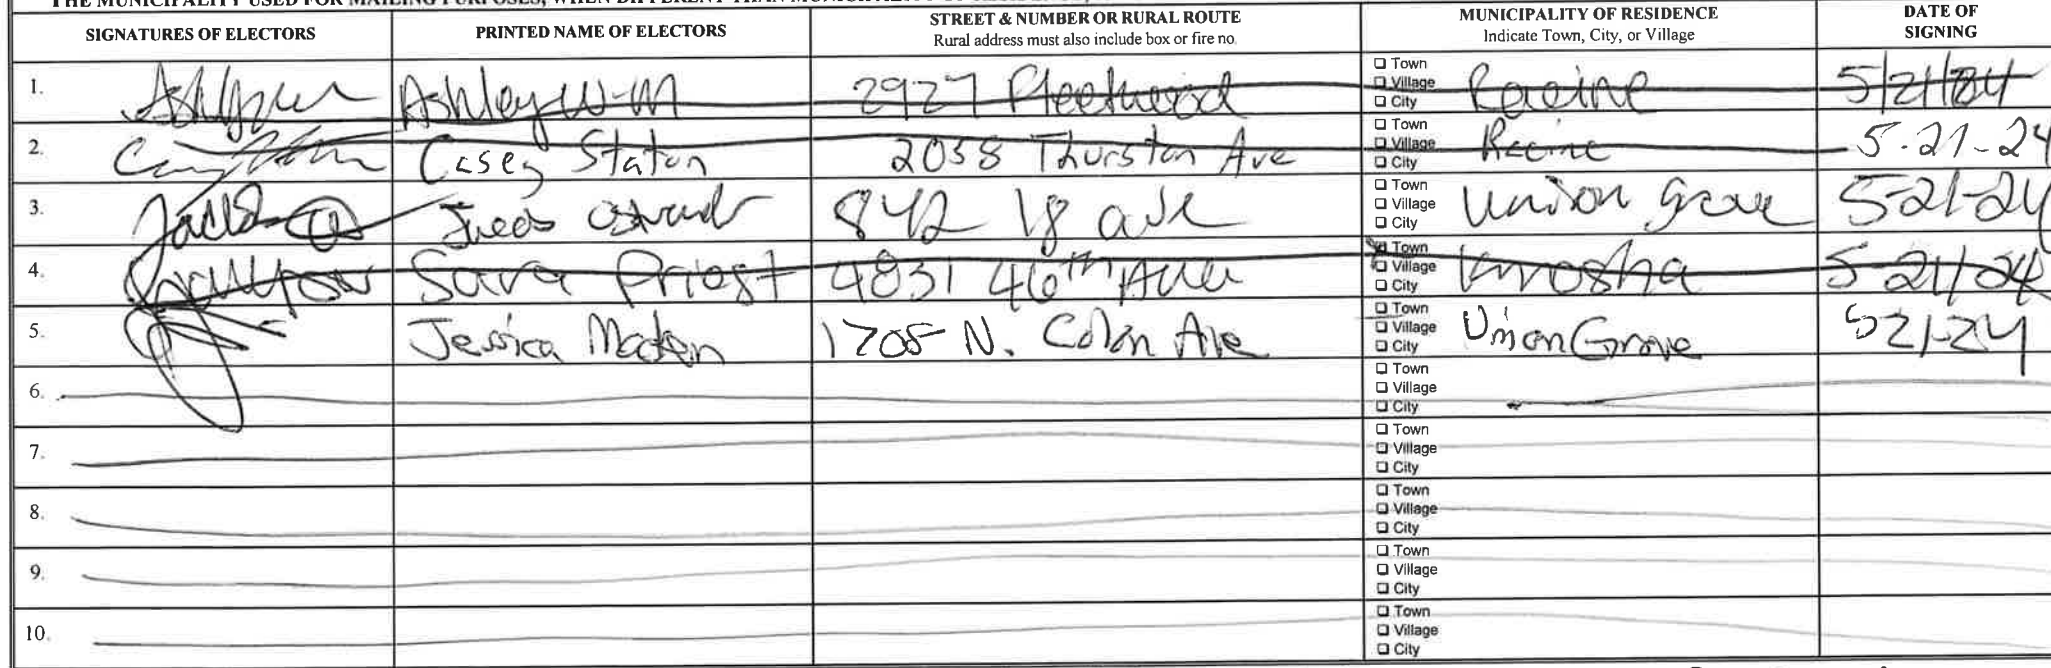 THE MUNICIPALITY USED FOR MAILING PURPOSES, WHEN DIFFERENT THAN MUNICIPALITY OF RESIDENCE,
SIGNATURES OF ELECTORS PRINTED NAME OF ELECTORS STREET & NUMBER OR RURAL ROUTE MUNICIPALITY OF RESIDENCE DATE OF SIGNING
Rural address must also include box or fire no. Indicate Town, City, or Village
1. Ashley W-M 2927 Fleetwood Town Village City Racine 5/21/24
2. Casey Staton 2038 Thurston Ave Town Village City Racine 5-21-24
3. 842 18 ave Town Village City Union grove 5-21-24
4. Sara Priest 4831 46th Ave Town Village City Kenosha 5-21/24
5. Jessica 1705 N. Colon Ave Town Village City Union Grove 5 21-24
6. Town Village City
7. Town Village City
8. Town Village City
9. Town Village City
10. Town Village City